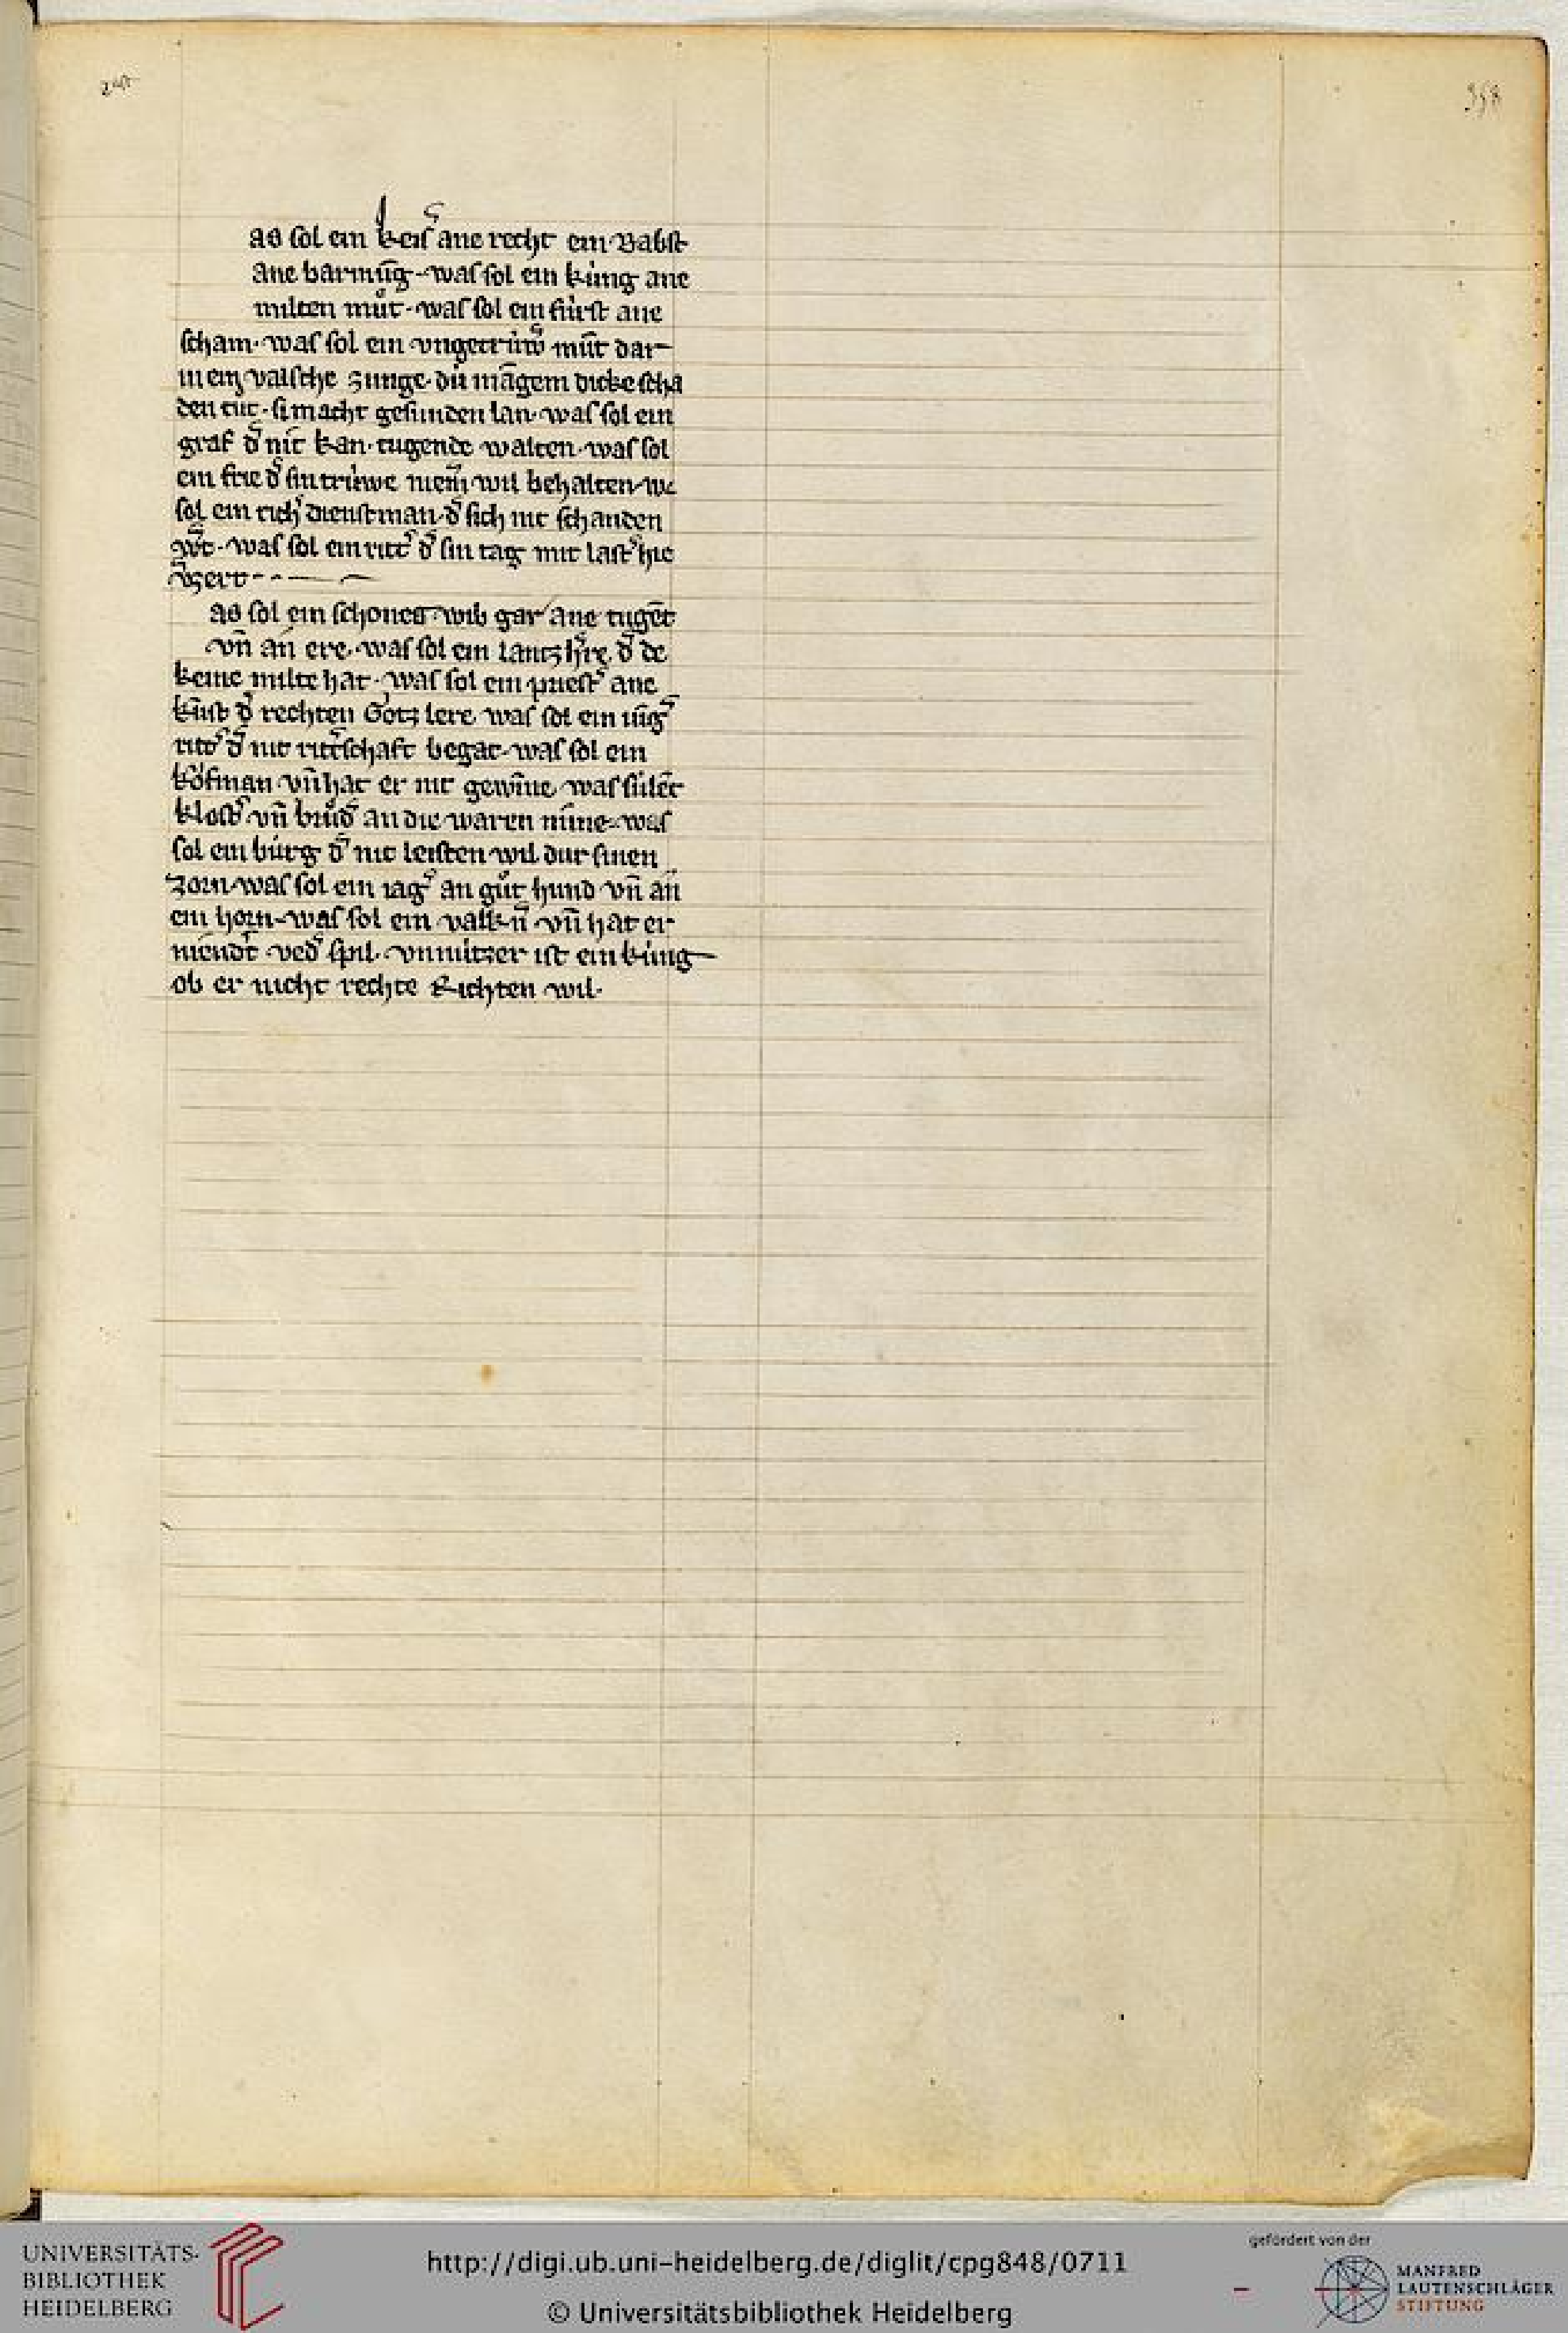 358
as sol ein keisʼ ane recht ein Babst
ane barmūg · was sol ein kúnig ane
milten můt · was sol ein fúrst ane
scham · was sol ein vngetrúwʼ mūt dar
in ein valsche zunge · dú māgem dicke scha
den tůt · si macht gesunden lan · was sol ein
graf dʼ nit kan · tugende walten · was sol
ein frie dʼ sin trúwe niem̄ wil behalten · wc
sol ein richʼ dienstman · dʼ sich nit schanden
wʼt · was sol ein rittʼ dʼ sin tag mit lastʼ hie
vʼzert
as sol ein schones wib gar ane tugēt
vn̄ an ere · was sol ein lantzhʼre dʼ de
keine milte hat · was sol ein priestʼ ane
kūst dʼ rechten Gotz lere was sol ein iūgʼ
rittʼ dʼ nit rittʼschaft begat · was sol ein
kǒfman vn̄ hat er nit gewīne was súlēt
klostʼ vn̄ brůdʼ an die waren mīne · was
sol ein búrg dʼ nit leisten wil dur sinen
zorn · was sol ein iagʼ an gůt hund vn̄ an
ein horn · was sol ein valknʼ vn̄ hat er
niendʼt vedʼ spil · vnnútzer ist ein kúnig
ob er nicht rechte Richten wil ·
UNIVERSITÄTS-
BIBLIOTHEK
HEIDELBERG
http://digi.ub.uni-heidelberg.de/diglit/cpg848/0711
© Universitätsbibliothek Heidelberg
gefördert von der
MANFRED
LAUTENSCHLÄGER
STIFTUNG